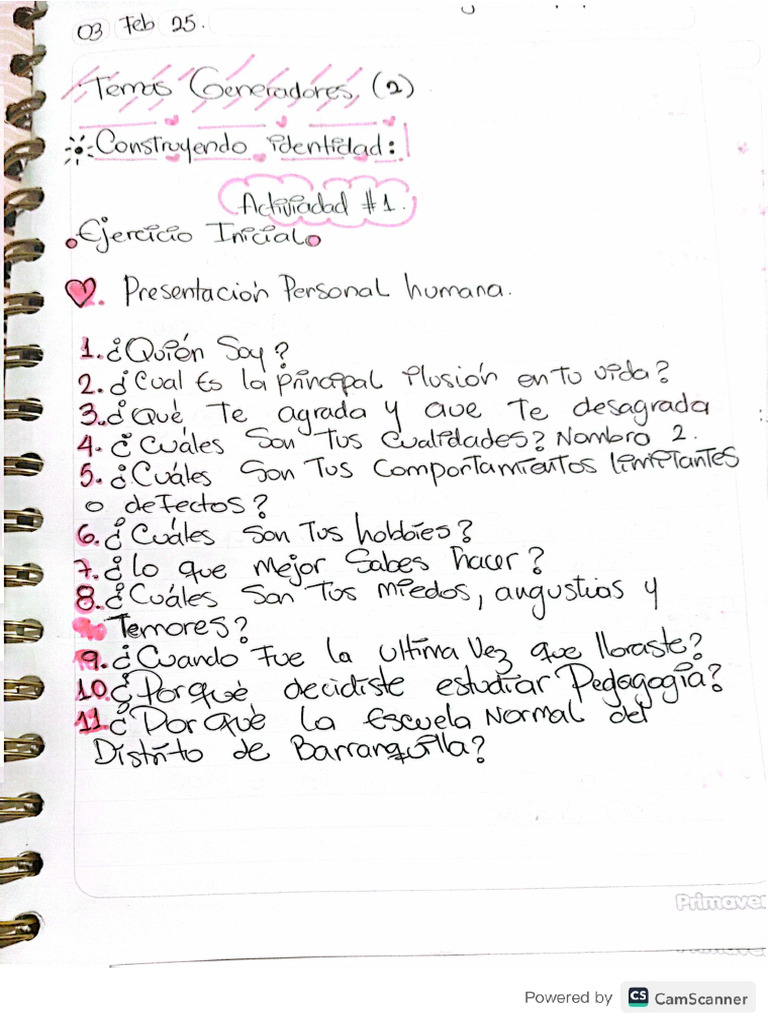 03 Feb 25.
Temas Generadores. (2)
Construyendo identidad:
Actividad #1.
Ejercicio Inicial
Presentación Personal humana.
1. ¿Quién Soy?
2. ¿Cual Es la principal ilusión en tu vida?
3. ¿Qué Te agrada y que Te desagrada
4. ¿Cuáles Son Tus Cualidades? Nombro 2.
5. ¿Cuáles Son Tus Comportamientos limitantes
o defectos?
6. ¿Cuáles Son Tus hobbies?
7. ¿Lo que mejor Sabes hacer?
8. ¿Cuáles Son Tus miedos, angustias y
Temores?
9. ¿Cuando Fue la ultima Vez que lloraste?
10. ¿Porqué decidiste estudiar Pedagogía?
11 ¿Por qué la Escuela Normal del
Distrito de Barranquilla?
Primaver
Powered by CS CamScanner